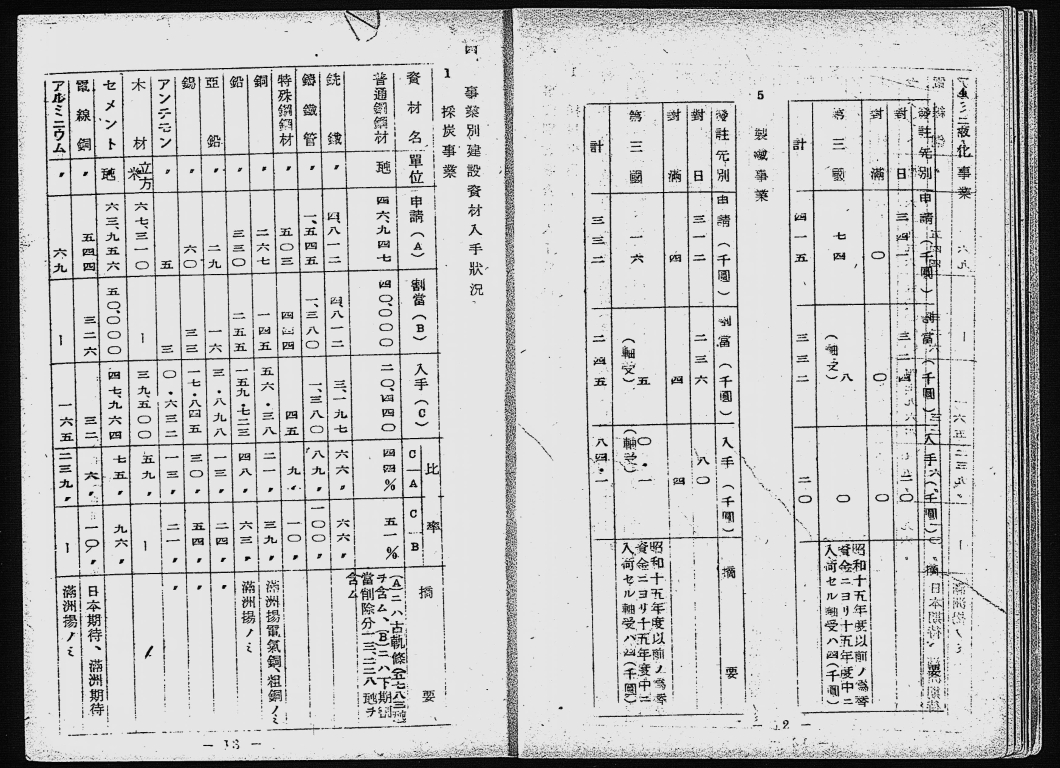 4 液化事業
發註先別 申請(千圓) 割當(千圓) 入手(千圓) 摘要
對日 三四一 三二四 二〇
對滿 〇 〇 〇
第三國 七四 八(軸受) 〇 昭和十五年度以前ノ爲替資金ニヨリ十五年度中ニ入荷セル軸受ハ四(千圓)
計 四一五 三三二 二〇
5 製鐵事業
發註先別 申請(千圓) 割當(千圓) 入手(千圓) 摘要
對日 三一二 二三六 八〇
對滿 四 四 四
第三國 一六 五(軸受) 〇・一(軸受) 昭和十五年度以前ノ爲替資金ニヨリ十五年度中ニ入荷セル軸受ハ四(千圓)
計 三三二 二四五 八四・一
四 事業別建設資材入手狀況
1 採炭事業
資材名 單位 申請(A) 割當(B) 入手(C) 比率 C/A C/B 摘要
普通鋼鋼材 瓲 四六、九四七 四〇、〇〇〇 二〇、四四〇 四四% 五一% (A)ニハ古軌條(五七八三瓲)ヲ含ム、(B)ニハ下期割當削除分一三、二二八瓲ヲ含ム
銑鐵 〃 四、八一二 四、八一二 三、一九七 六六〃 六六〃
鑄鐵管 〃 一、五四五 一、三八〇 一、三八〇 八九〃 一〇〇〃
特殊鋼鋼材 〃 五〇三 四四四 四五 九〃 一〇〃
銅 〃 二六七 一四五 五六・三八 二一〃 三九〃 滿洲揚電氣銅、粗銅ノミ
鉛 〃 三三〇 二五五 一五九・七二三 四八〃 六三〃 滿洲揚ノミ
亞鉛 〃 二九 一六 三・八九八 一三〃 二四〃 〃
錫 〃 六〇 三三 一七・八四五 三〇〃 五四〃 〃
アンチモン 〃 五 三 〇・六三二 一三〃 二一〃 〃
木材 立方米 六七、三一〇 ー 三九、五〇〇 五九〃 ー
セメント 瓲 六三、九五六 五〇、〇〇〇 四七、九六四 七五〃 九六〃
電線銅 〃 五四四 三二六 三二 六〃 一〇〃 日本期待、滿洲期待
アルミニウム 〃 六九 ー 一六五 二三九〃 ー 滿洲揚ノミ
— 12 —
— 13 —